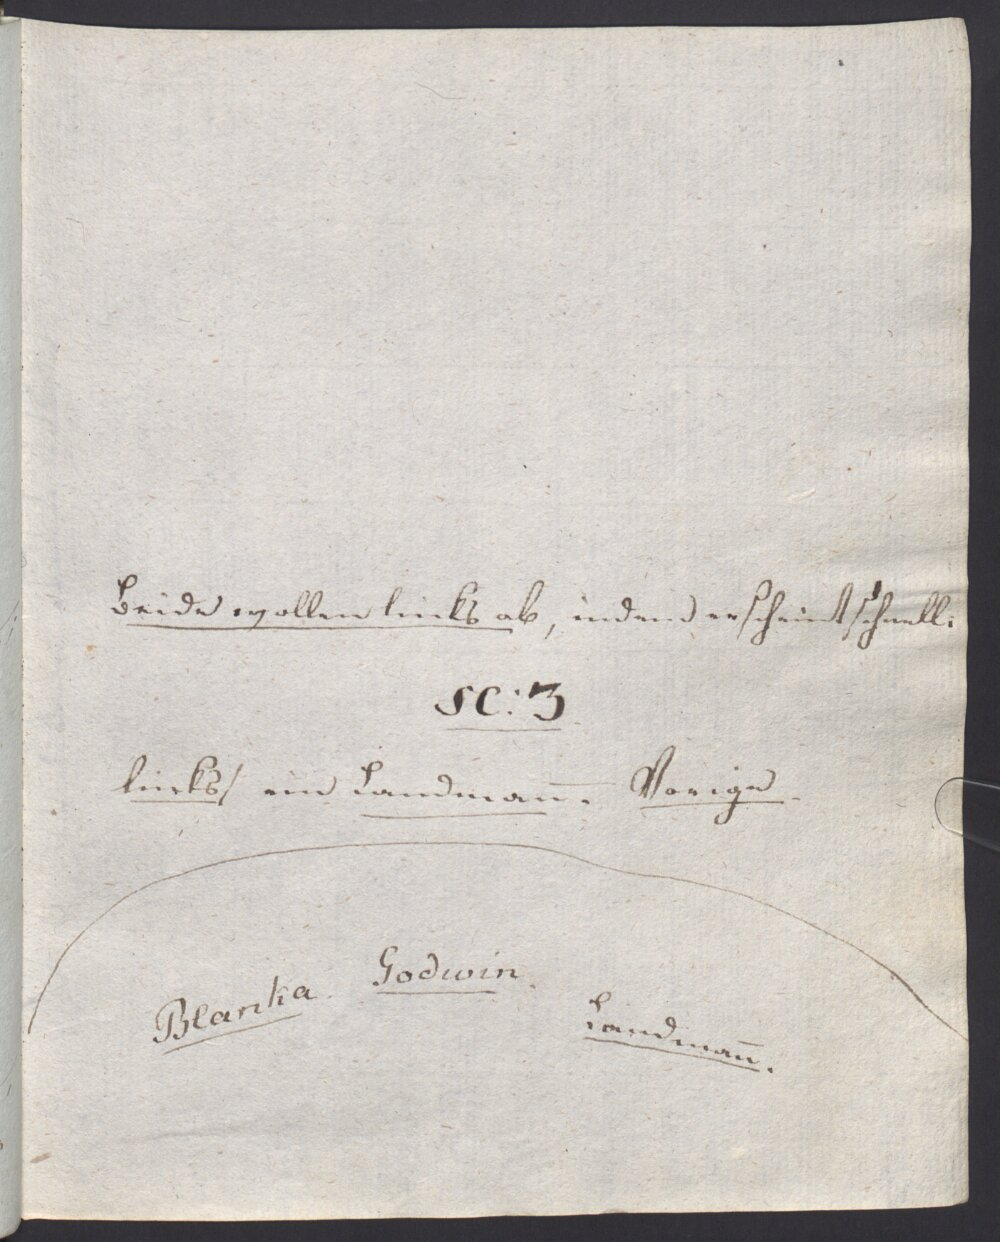 Beide wollen links ab, indem erscheint schnell:
SC: 3
links/ ein Landman̅. Vorige.
Blanka. Godwin.
Landman̅.